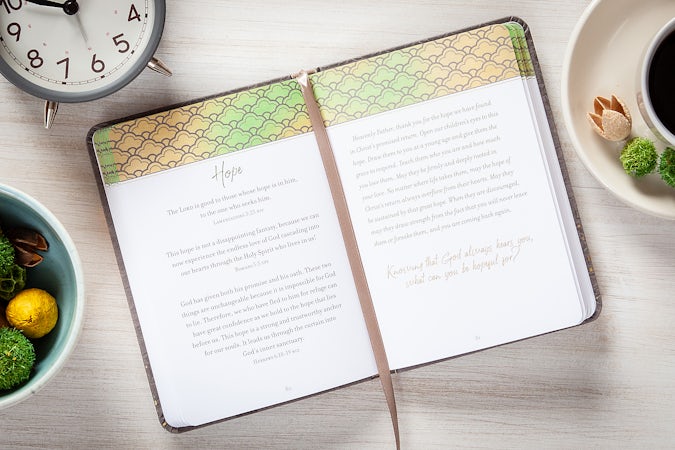 10
9
8
7
6
5
4
Hope
The LORD is good to those whose hope is in him,
to the one who seeks him.
LAMENTATIONS 3:25 NIV
This hope is not a disappointing fantasy, because we can
now experience the endless love of God cascading into
our hearts through the Holy Spirit who lives in us!
ROMANS 5:5 TPT
God has given both his promise and his oath. These two
things are unchangeable because it is impossible for God
to lie. Therefore, we who have fled to him for refuge can
have great confidence as we hold to the hope that lies
before us. This hope is a strong and trustworthy anchor
for our souls. It leads us through the curtain into
God's inner sanctuary.
HEBREWS 6:18-19 NLT
Heavenly Father, thank you for the hope we have found
in Christ's promised return. Open our children's eyes to this
hope. Draw them to you at a young age and give them the
grace to respond. Teach them who you are and how much
you love them. May they be firmly and deeply rooted in
your love. No matter where life takes them, may the hope of
Christ's return always overflow from their hearts. May they
be sustained by that great hope. When they are discouraged,
may they draw strength from the fact that you will never leave
them or forsake them, and you are coming back again.
Knowing that God always hears you,
what can you be hopeful for?